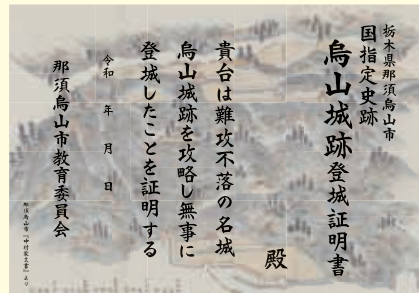 栃木県那須烏山市
国指定史跡
烏山城跡登城証明書
殿
貴台は難攻不落の名城
烏山城跡を攻略し無事に
登城したことを証明する
令和　年　月　日
那須烏山市教育委員会